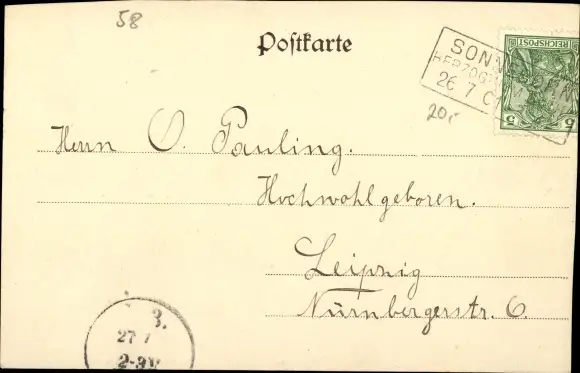 58
Postkarte
SONN
HERZOG
26 7
REICHSPOST
5 5
20,-
Herrn O. Pauling.
Hochwohlgeboren.
Leipzig
Nürnbergerstr. 6.
3.
27 7
2-3